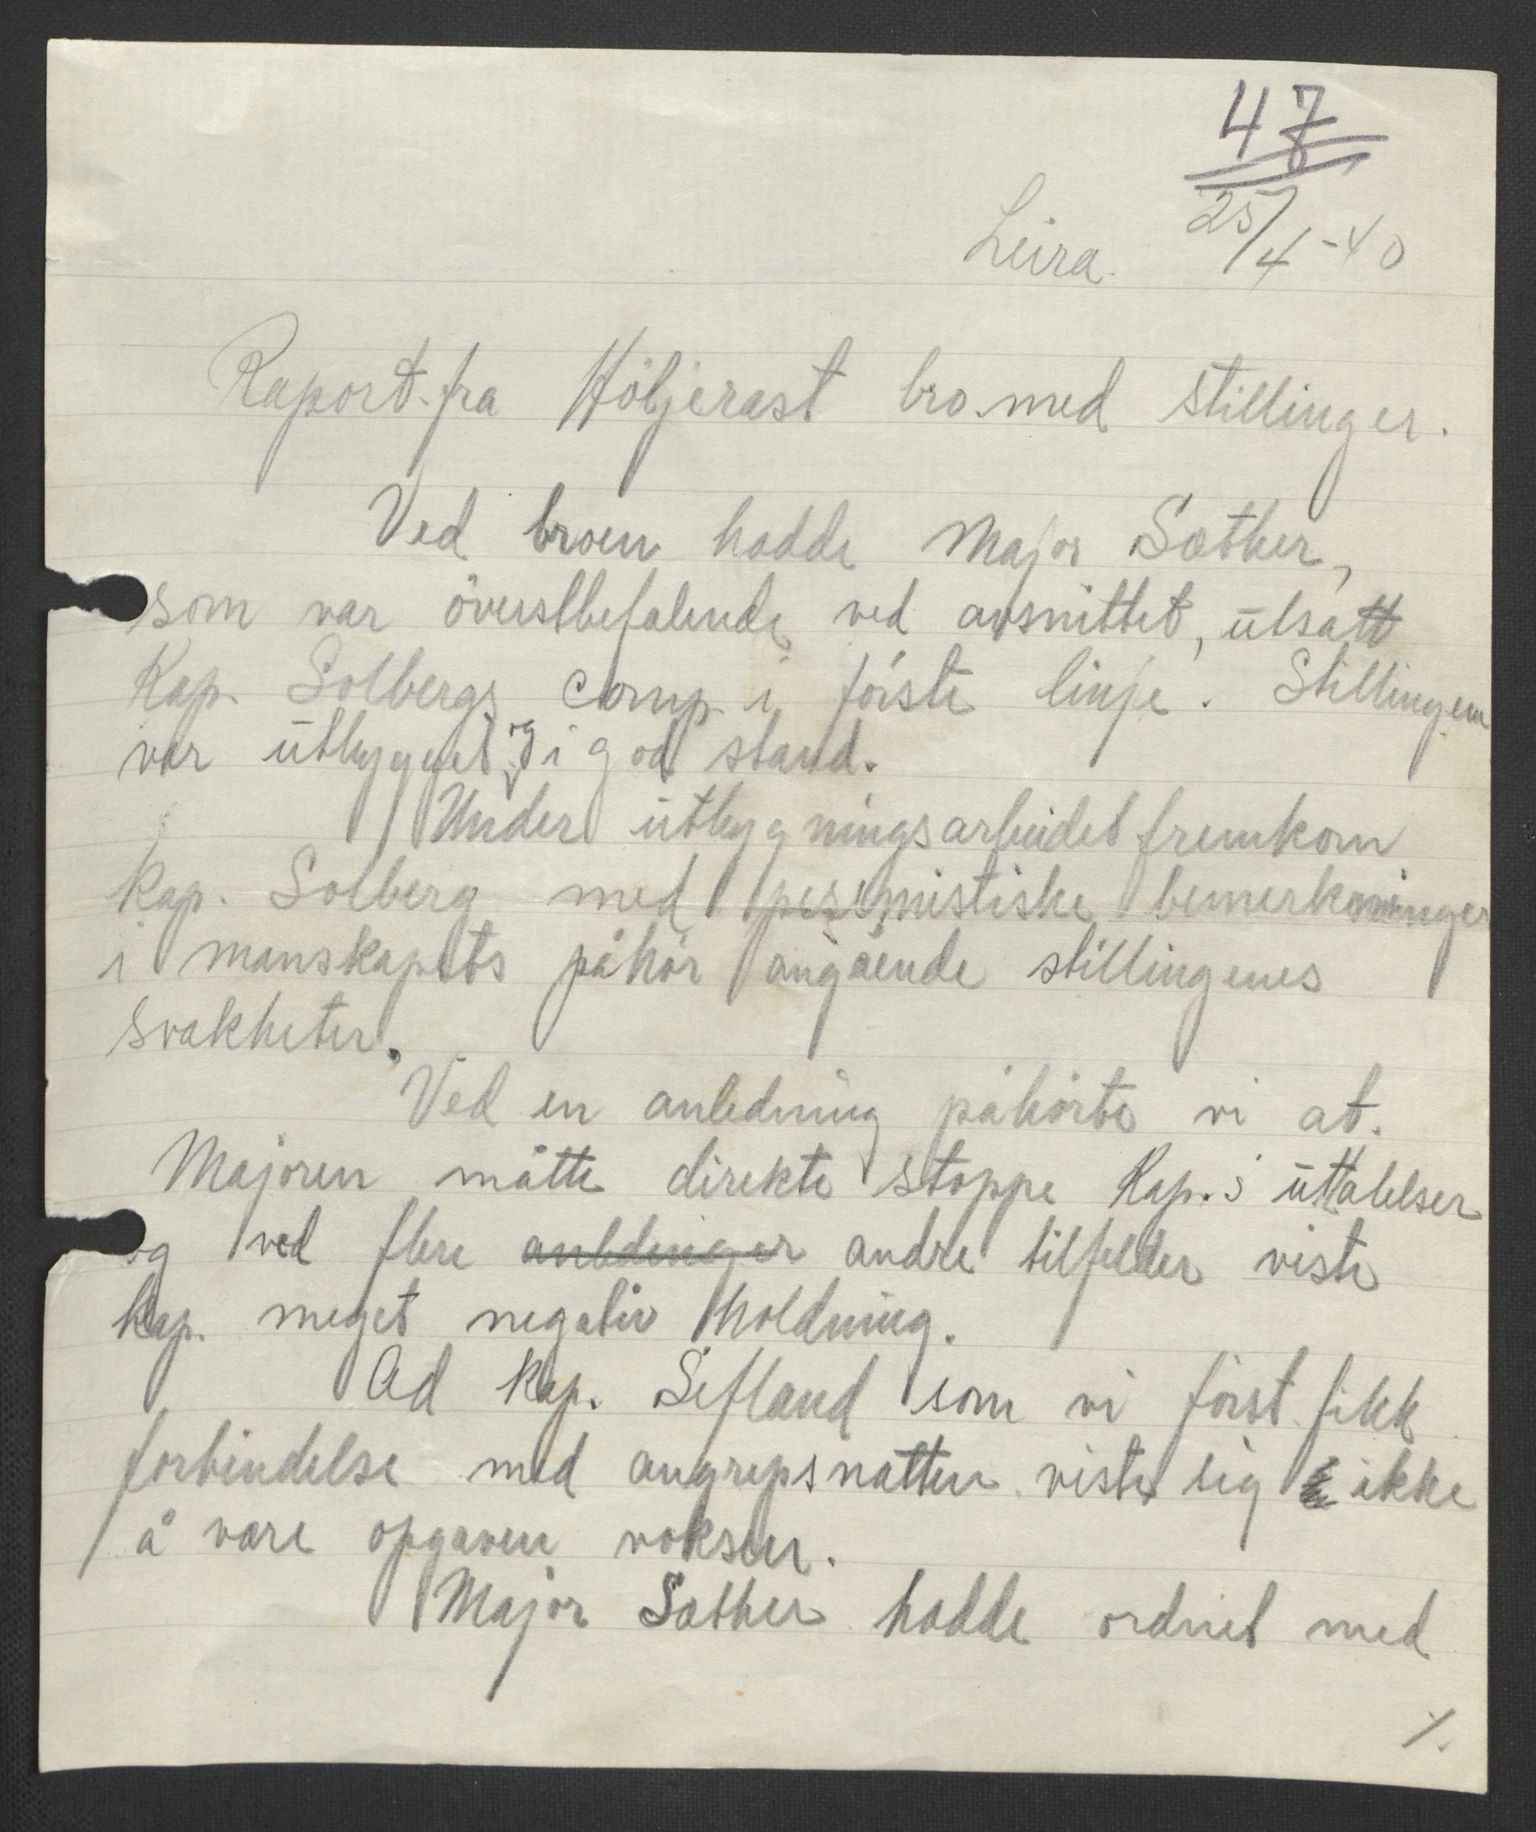 47
Leira. 25/4-40
Raport fra Höljerast bro med stillinger.
Ved broen hadde Major Sæther,
som var överstbefalende ved avsnittet, utsatt
Kap. Solbergs comp. i förste linje. Stillingen
var utbygget og i god stand.
Under utbygningsarbeidet fremkom
Kap. Solberg med pesimistiske bemerkninger
i manskapets påhör angående stillingenes
svakheter.
Ved en anledning påhörte vi at.
Majoren måtte direkte stoppe Kap.s uttalelser
og ved flere anledninger andre tilfeller viste
kap. meget negativ holdning.
Ad kap. Sefland som vi först fikk
forbindelse med angrepsnatten viste sig ikke
å være opgaven voksen.
Major Sæther hadde ordnet med
./.